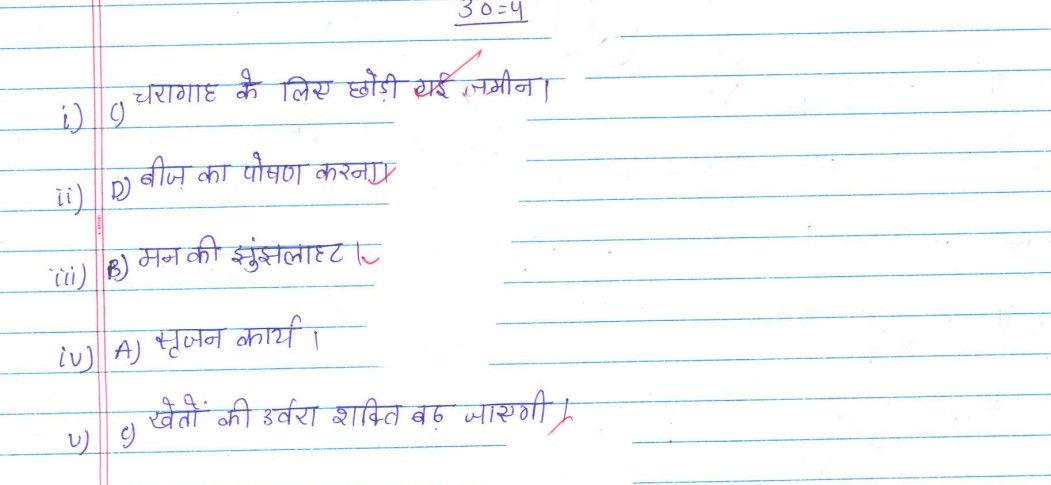 उ०=4
i) C) चरागाह के लिए छोड़ी गई ज़मीन।
ii) D) बीज़ का पोषण करना।
iii) B) मन की झुंझलाहट।
iv) A) सृजन कार्य।
v) C) खेतों की उर्वरा शक्ति बढ़ जाएगी।